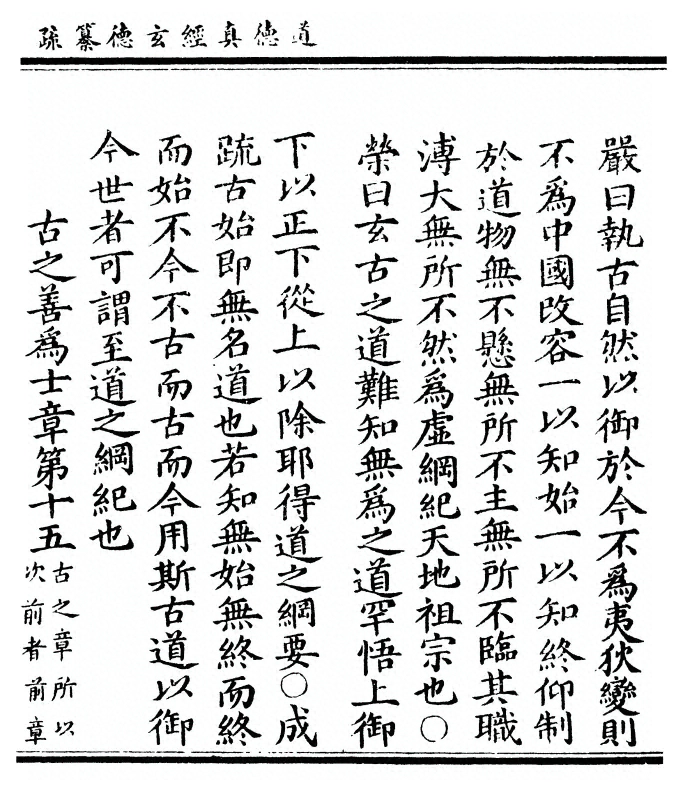 道德真經玄德纂疏
嚴曰執古自然以御於今不爲夷狄變則
不爲中國改容一以知始一以知終仰制
於道物無不懸無所不主無所不臨其職
溥大無所不然爲虛綱紀天地祖宗也〇
榮曰玄古之道難知無爲之道罕悟上御
下以正下從上以除耶得道之綱要〇成
疏古始即無名道也若知無始無終而終
而始不今不古而古而今用斯古道以御
今世者可謂至道之綱紀也
古之善爲士章第十五
古之章所以
次前者前章